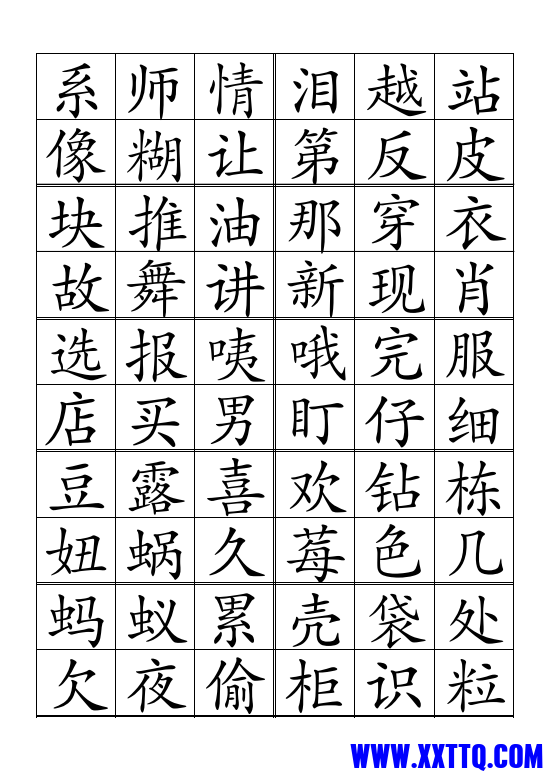 系 师 情 泪 越 站
像 糊 让 第 反 皮
块 推 油 那 穿 衣
故 舞 讲 新 现 肖
选 报 咦 哦 完 服
店 买 男 盯 仔 细
豆 露 喜 欢 钻 栋
妞 蜗 久 莓 色 几
蚂 蚁 累 壳 袋 处
欠 夜 偷 柜 识 粒
WWW.XXTTQ.COM